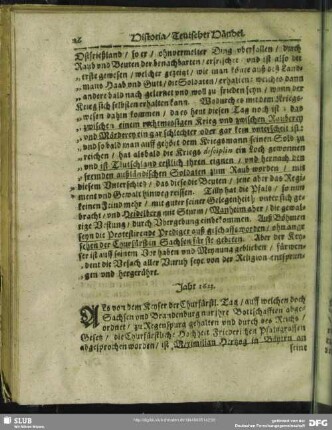 28 Historia / Teutscher Händel.
Ostfrießland / so er / ohnvermelter Ding uberfallen / durch
Raub und Beuten der benachbarten / und ist also der
erste gewesen / welcher gezeigt / wie man könte auß deß Lands
manns Haab und Gutt / die Soldaten / erhalten; welches dann
andere bald nach gelernet und woll zu frieden seyn / wenn der
Krieg sich selbsten erhalten kan. Wodurch es mit dem Kriegs-
wesen dahin kommen / daß es heut diesen Tag noch ist: das
zwischen einem rechtmässigen Krieg und zwischen Rauberey
und Mörderey ein gar schlechter oder gar kein unterscheid ist:
und so bald man auff gehöret dem Kriegsmann seinen Sold zu
reichen / hat alsbald die Kriegs disciplin ein Loch gewonnen
und ist Teutschland erstlich ihren eignen / und hernach den
frembden außländischen Soldaten zum Raub worden / mit
diesem Unterscheid / das diese die Beuten / jene aber das Regi-
ment und Gewalt hinweg reissen. Tilly hat die Pfalz / so nun
keinen Feind mehr / mit guter seiner Gelegenheit / unter sich ge-
bracht / und Heidelberg mit Sturm / Manheim aber / die gewal-
tige Vestung / durch Ubergebung einbekommen. Auß Böhmen
seyn die Protestirende Prediger auß geschafft worden / ohn ange-
sehen der Churfürst in Sachsen für sie gebeten. Aber der Key-
ser ist auff seinem Vorhaben und Meynung geblieben / fürwen-
dent die Ursach aller Unruh seye von der Religion entsprun-
gen und hergerührt.
Jahr 1623.
Als von dem Keyser der Churfürstl. Tag / auff welchen doch
Sachsen und Brandenburg nur ihre Bottschafften abge-
ordnet / zu Regenspurg gehalten und durch des Reichs
Gesetz / die Churfürstliche Hochheit Friederichen Pfalzgraffen
abgesprochen worden / ist Maximilian Herzog in Bäyern an
seine
SLUB
Wir führen Wissen.
http://digital.slub-dresden.de/
gefördert von der
Deutschen Forschungsgemeinschaft
DFG